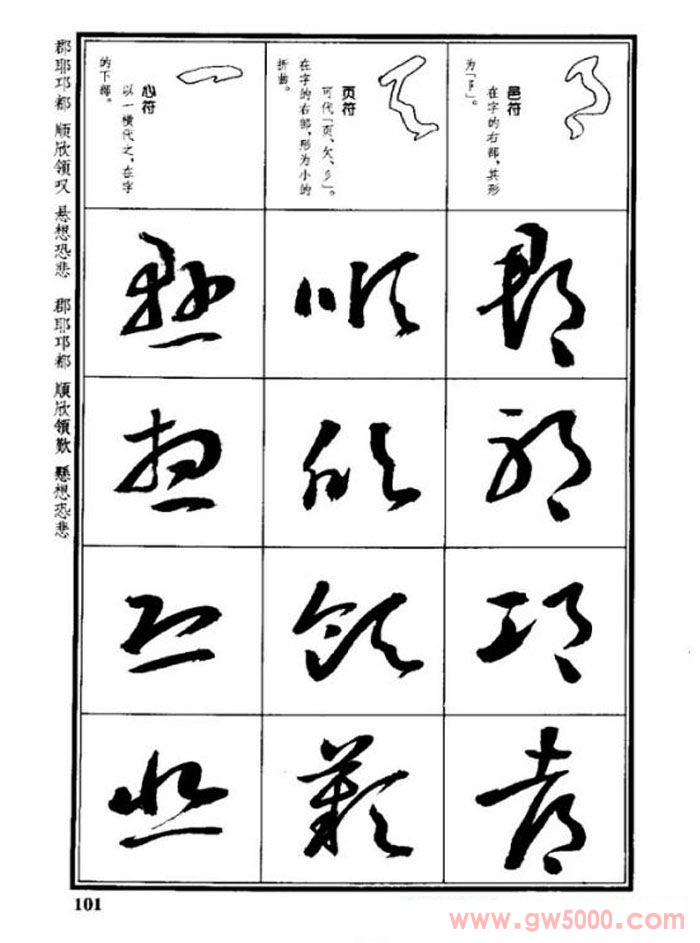 邑符
在字的右部，其形
为「阝」。
郡
耶
邛
都
页符
可代「页、欠、彡」。
在字的右部，形为小的
折曲。
順
欣
領
歎
心符
以一横代之，在字
的下部。
懸
想
恐
悲
郡耶邛都 顺欣领叹 悬想恐悲 郡耶邛都 順欣領歎 懸想恐悲
101
www.gw5000.com